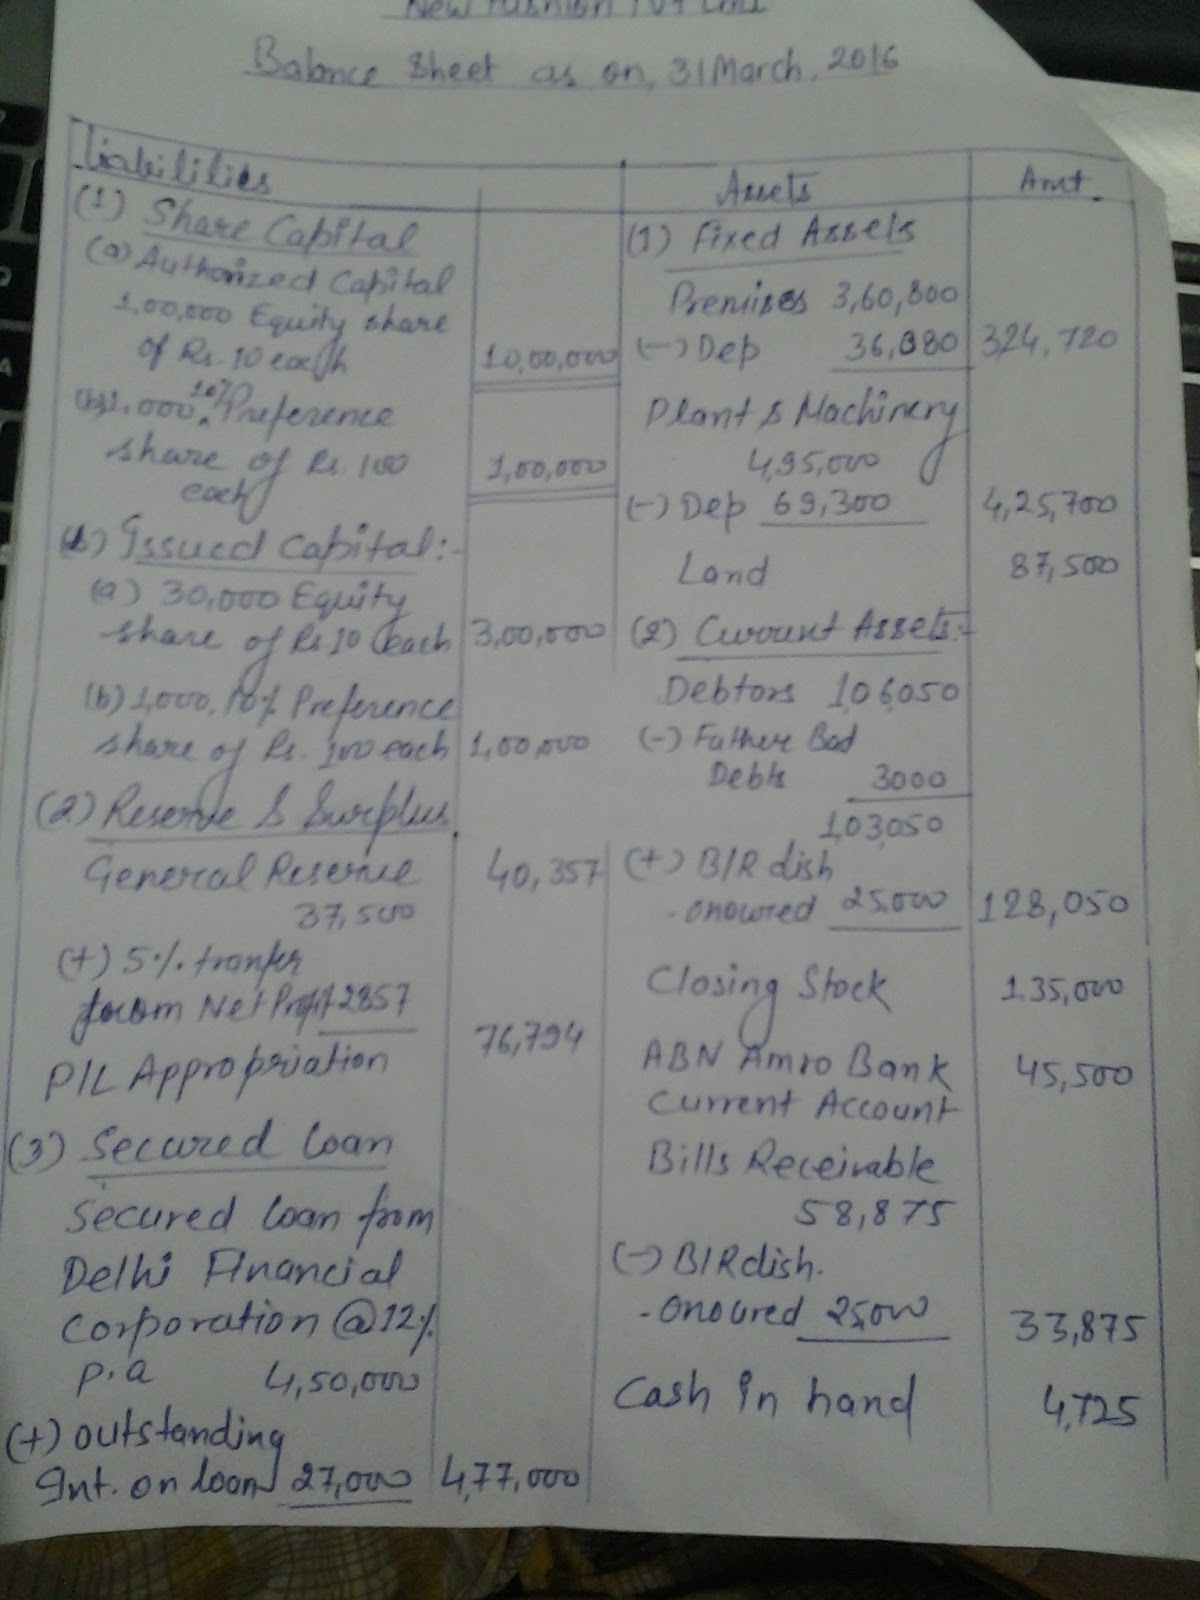 Balance Sheet as on, 31 March, 2016
Liabililies
(1) Share Capital
(a) Authorized Capital
1,00,000 Equity share
of Rs. 10 each 10,00,000
(b) 1,000 10% Preference
share of Rs. 100 1,00,000
each
Issued Capital:-
(a) 30,000 Equity
share of Rs 10 each 3,00,000
(b) 1,000, 10% Preference
share of Rs. 100 each 1,00,000
(2) Reserve & Surplus
General Reserve 40,357
37,500
(+) 5% tranfer
from Net Profit 2857
76,794
P/L Appropriation
(3) Secured loan
Secured loan from
Delhi Financial
Corporation @ 12%
P.a 4,50,000
(+) outstanding
Int. on loan 27,000 4,77,000
Assets Amt.
(1) Fixed Assets
Premises 3,60,800
(-) Dep 36,080 324,720
Plant & Machinery
4,95,000
(-) Dep 69,300 4,25,700
Land 87,500
(2) Current Assets:-
Debtors 1,06,050
(-) Futher Bad
Debts 3000
1,03,050
(+) B/R dish
-onoured 25,000 128,050
Closing Stock 1,35,000
ABN Amro Bank 45,500
Current Account
Bills Receivable
58,875
(-) B/R dish.
-onoured 25,000 33,875
Cash in hand 4,725